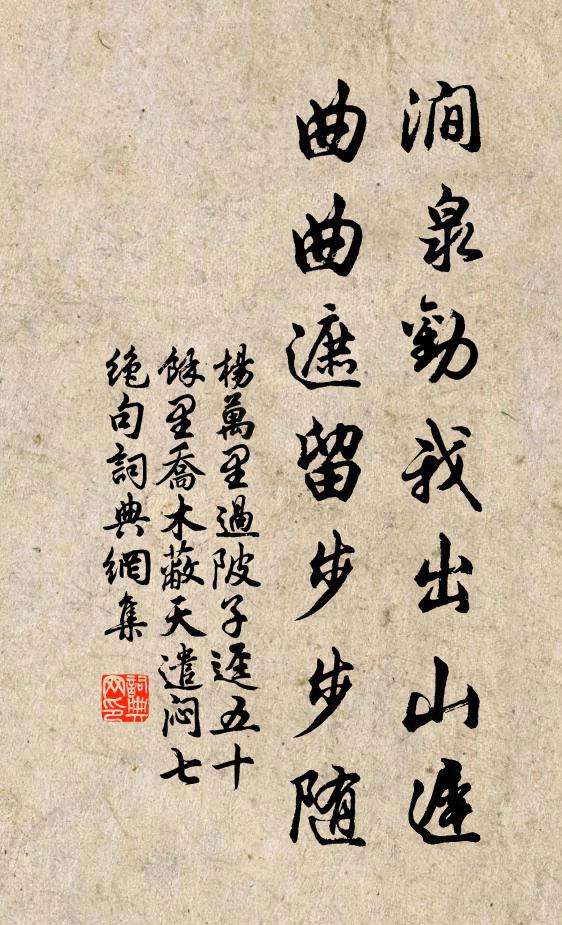 澗泉勸我出山遲
曲曲遮留步步随
楊萬里過陂子逕五十
餘里喬木蔽天遣闷七
絶句詞典網集
詞典网印